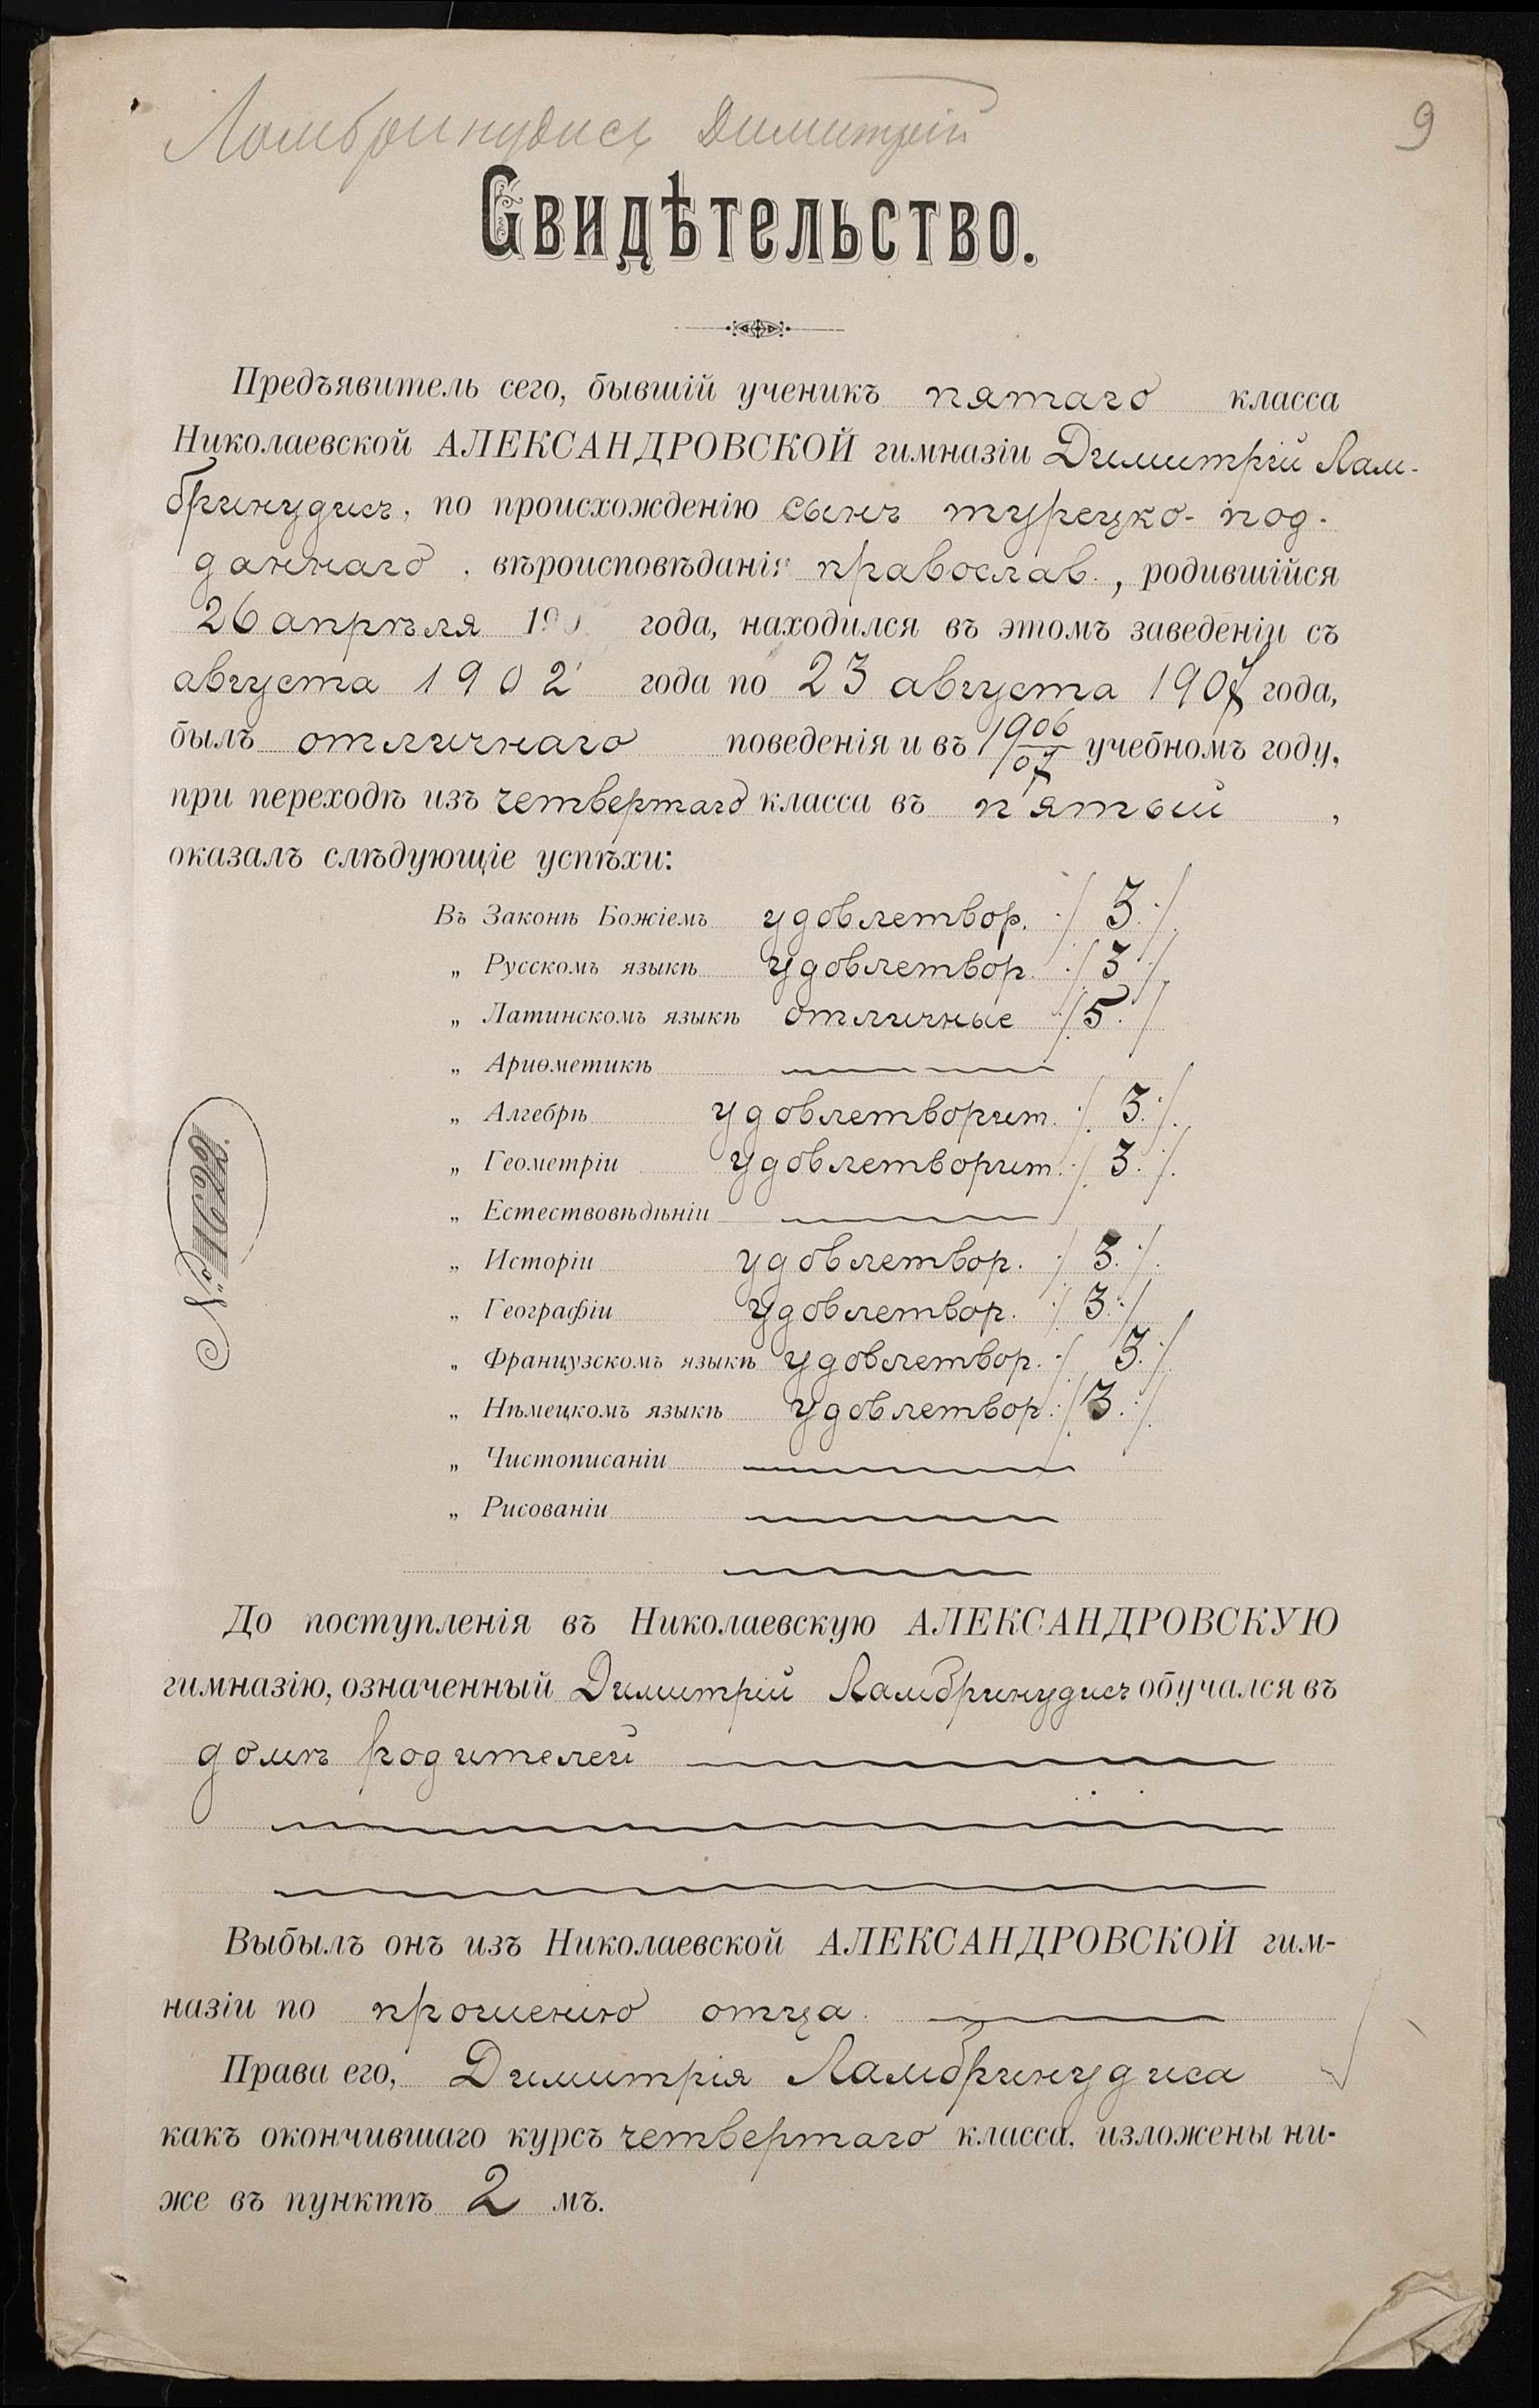 Ламбринудисъ Димитрій
9
Свидѣтельство.
Предъявитель сего, бывшій ученикъ пятаго класса
Николаевской АЛЕКСАНДРОВСКОЙ гимназіи Димитрій Лам-
бринудисъ, по происхожденію сынъ турецко-под-
даннаго, вѣроисповѣданія православ., родившійся
26 апрѣля года, находился въ этомъ заведеніи съ
августа 1902 года по 23 августа 1907 года,
былъ отличнаго поведенія и въ 1906/07 учебномъ году,
при переходѣ изъ четвертаго класса въ пятый,
оказалъ слѣдующіе успѣхи:
Въ Законѣ Божіемъ удовлетвор. ./3./.
„ Русскомъ языкѣ удовлетвор. ./3./.
„ Латинскомъ языкѣ отличные ./5./
„ Ариѳметикѣ
„ Алгебрѣ удовлетворит. ./3./.
„ Геометріи удовлетворит. ./3./.
„ Естествовѣдѣніи
„ Исторіи удовлетвор. ./3./.
„ Географіи удовлетвор. ./3./
„ Французскомъ языкѣ удовлетвор. ./3./
„ Нѣмецкомъ языкѣ удовлетвор. ./3./.
„ Чистописаніи
„ Рисованіи
№
До поступленія въ Николаевскую АЛЕКСАНДРОВСКУЮ
гимназію, означенный Димитрій Ламбринудисъ обучался въ
домѣ родителей
Выбылъ онъ изъ Николаевской АЛЕКСАНДРОВСКОЙ гим-
назіи по прошенію отца.
Права его, Димитрія Ламбринудиса
какъ окончившаго курсъ четвертаго класса, изложены ни-
же въ пунктѣ 2 мъ.